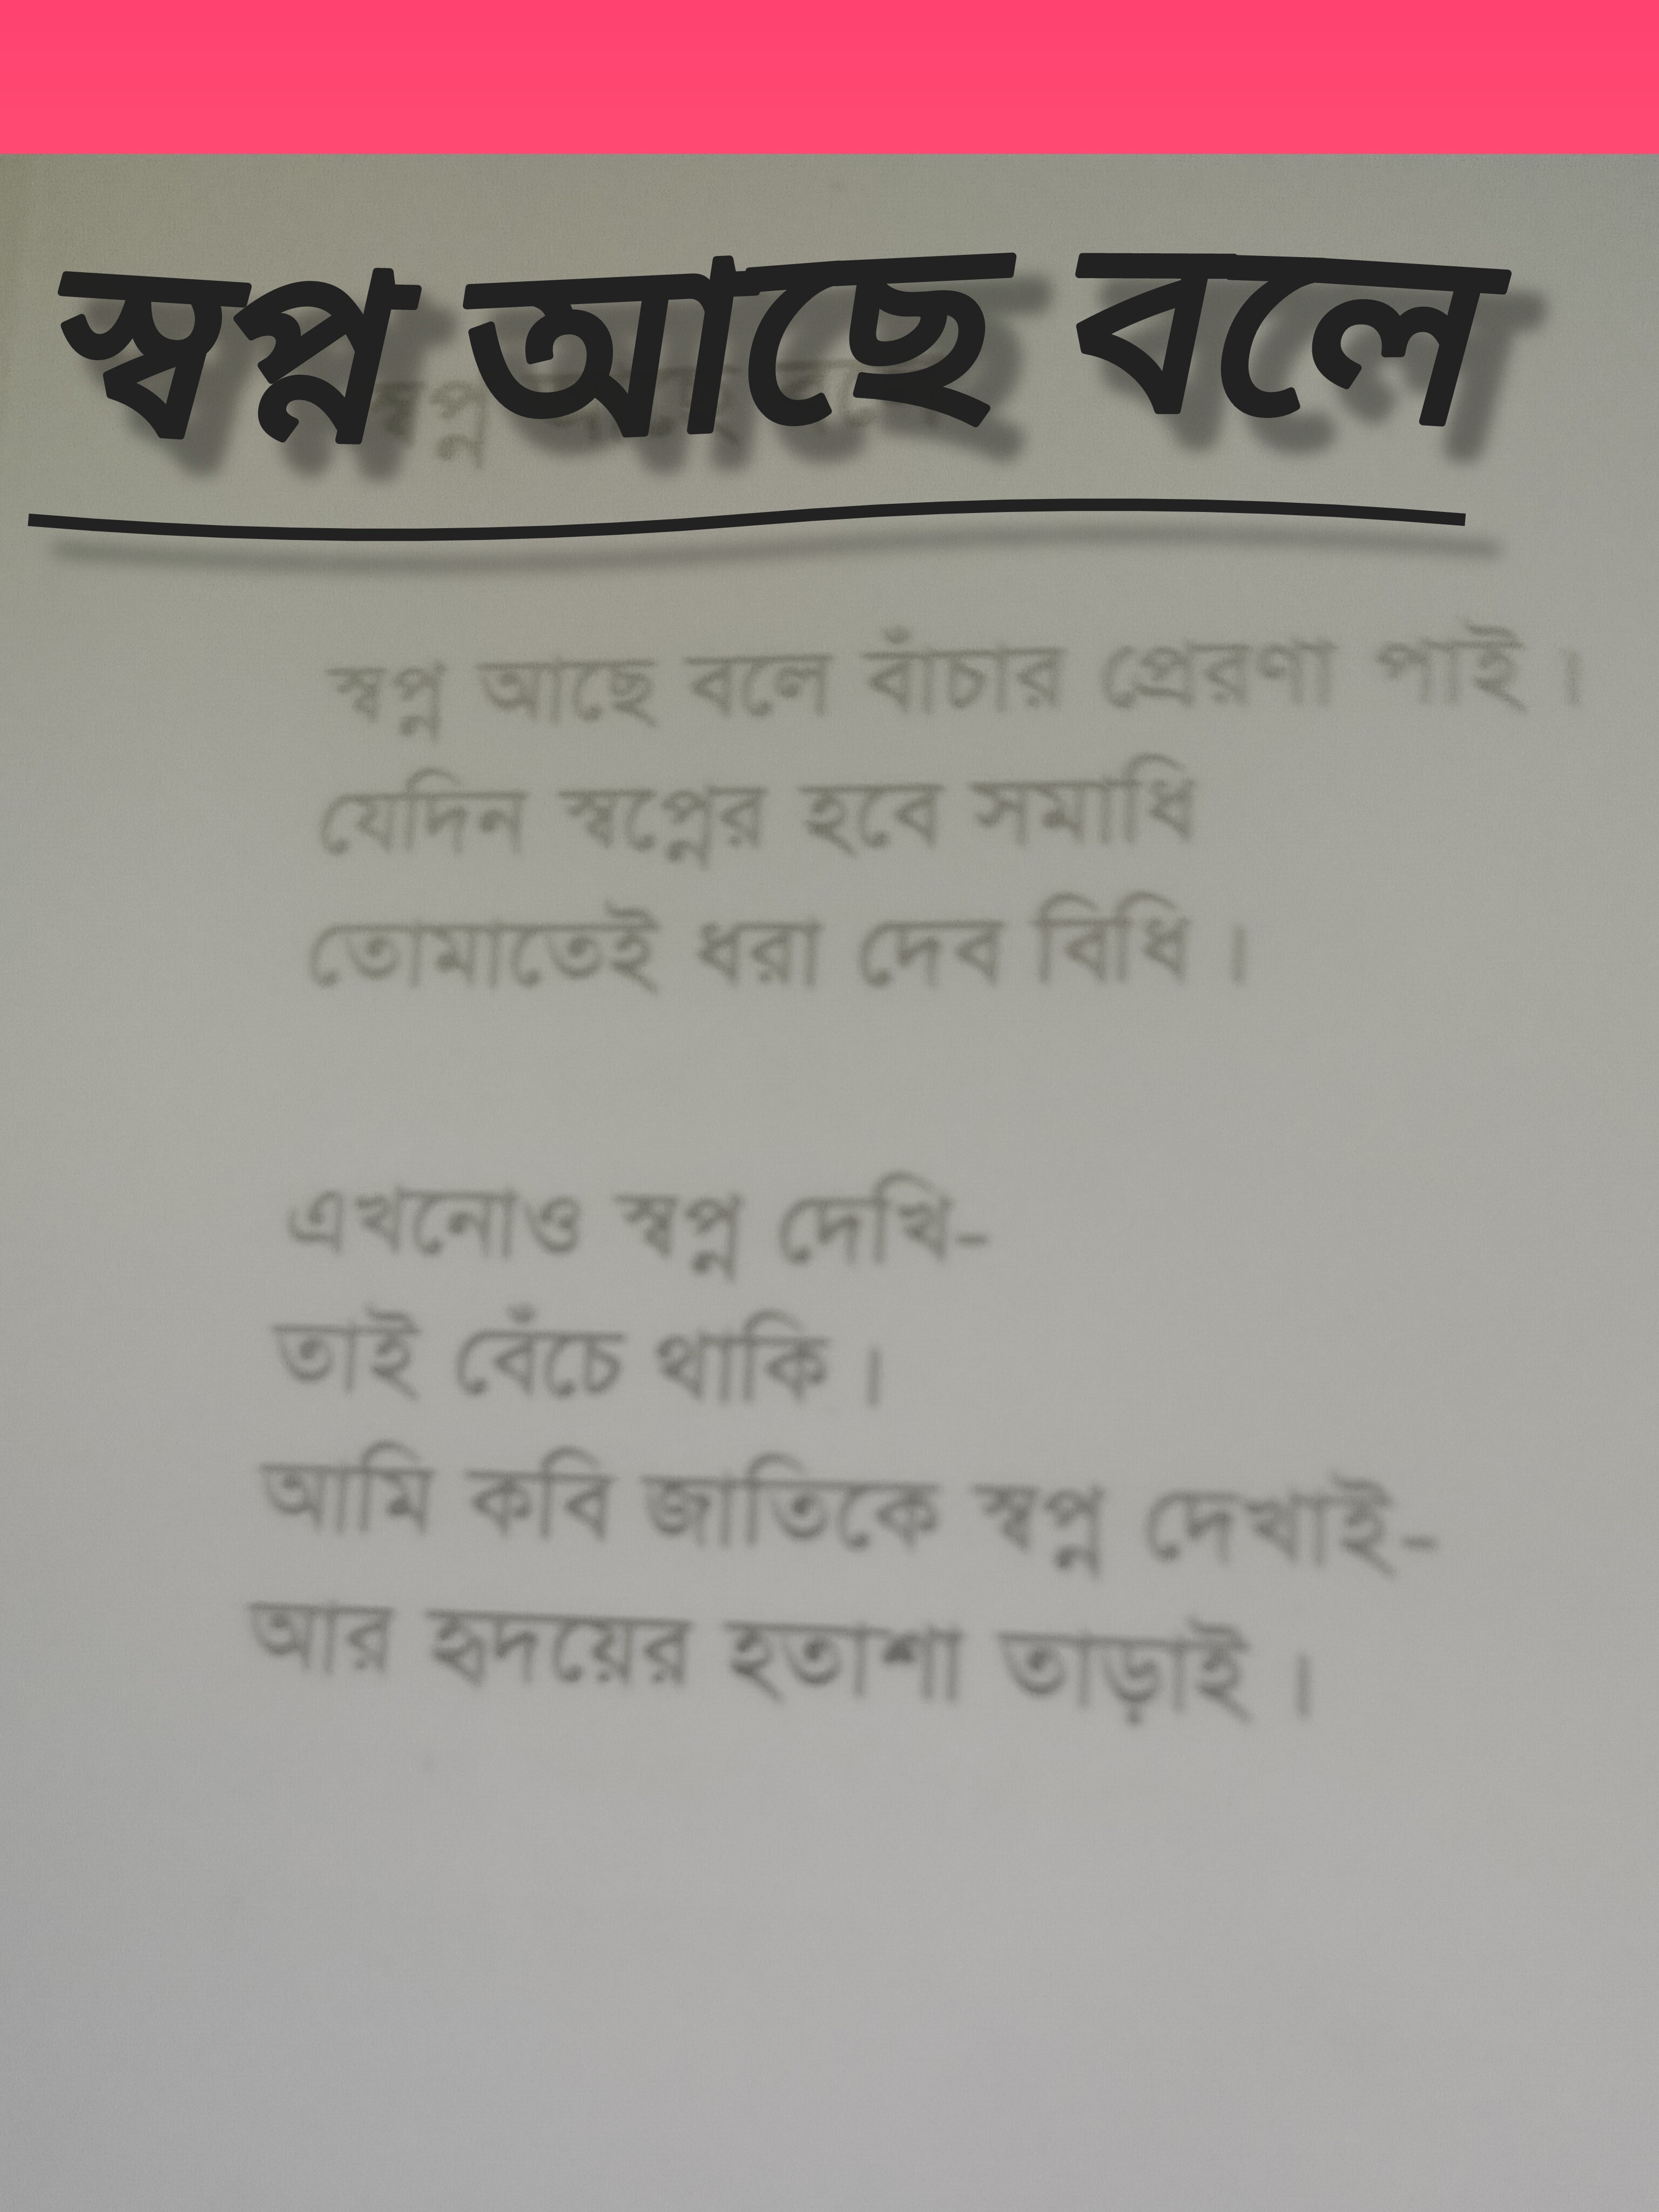 স্বপ্ন আছে বলে
স্বপ্ন আছে বলে
স্বপ্ন আছে বলে বাঁচার প্রেরণা পাই ।
যেদিন স্বপ্নের হবে সমাধি
তোমাতেই ধরা দেব বিধি ।
এখনোও স্বপ্ন দেখি-
তাই বেঁচে থাকি ।
আমি কবি জাতিকে স্বপ্ন দেখাই-
আর হৃদয়ের হতাশা তাড়াই ।